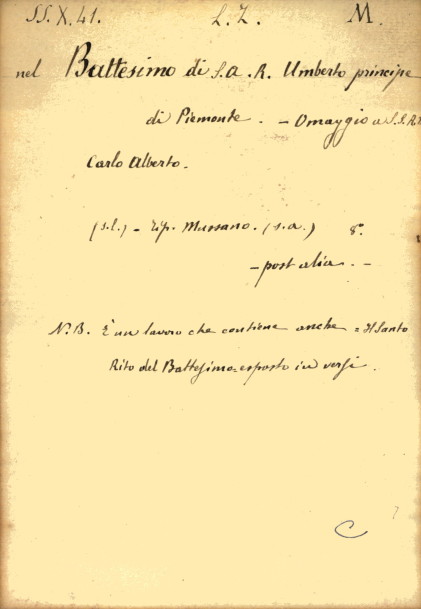 SS. X. 41. L. Z. M.
nel Battesimo di S. A. R. Umberto principe
di Piemonte. - Omaggio a S. S. R. M.
Carlo Alberto.
(s. l.) - Tip. Mussano. (s. a.) 8º.
- post alia. -
N. B. È un lavoro che contiene anche = Il Santo
Rito del Battesimo = esposto in versi.
C